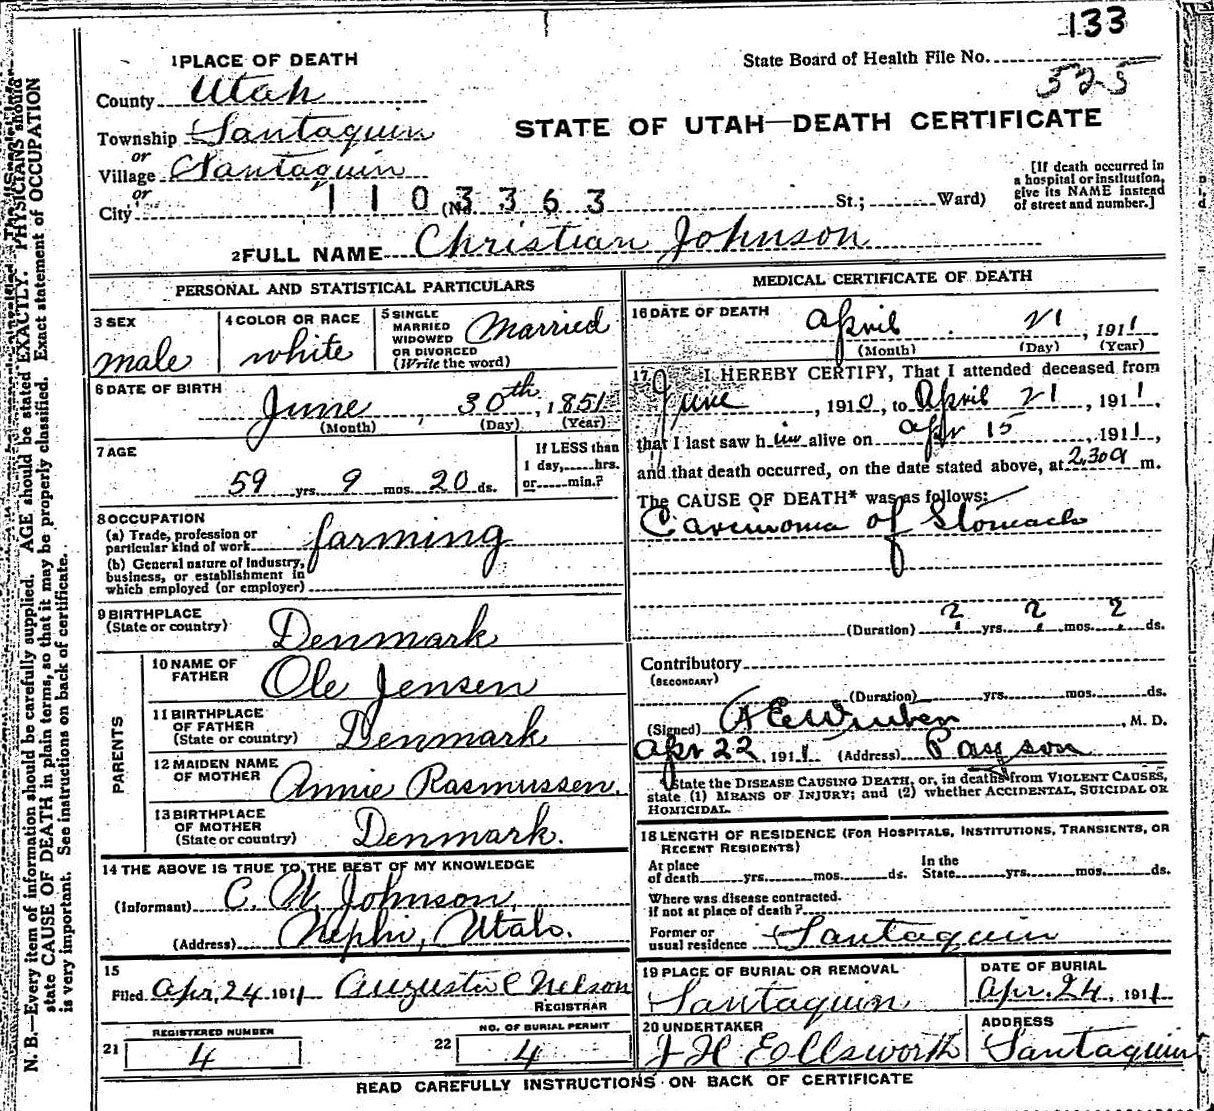 133
1 PLACE OF DEATH
State Board of Health File No.
525
County Utah
STATE OF UTAH—DEATH CERTIFICATE
Township Santaquin
or
Village Santaquin
or
City
1103363
(No. St.; Ward)
[If death occurred in
a hospital or institution,
give its NAME instead
of street and number.]
2 FULL NAME Christian Johnson
PERSONAL AND STATISTICAL PARTICULARS
3 SEX
male
4 COLOR OR RACE
white
5 SINGLE
MARRIED
WIDOWED
OR DIVORCED
(Write the word)
Married
6 DATE OF BIRTH
June 30th, 1851
(Month) (Day) (Year)
7 AGE
59 yrs. 9 mos. 20 ds.
If LESS than
1 day, hrs.
or min.?
8 OCCUPATION
(a) Trade, profession or
particular kind of work farming
(b) General nature of Industry,
business, or establishment in
which employed (or employer)
9 BIRTHPLACE
(State or country)
Denmark
PARENTS
10 NAME OF
FATHER
Ole Jensen
11 BIRTHPLACE
OF FATHER
(State or country)
Denmark
12 MAIDEN NAME
OF MOTHER
Annie Rasmussen.
13 BIRTHPLACE
OF MOTHER
(State or country)
Denmark.
14 THE ABOVE IS TRUE TO THE BEST OF MY KNOWLEDGE
(Informant) C. W. Johnson,
(Address) Nephi, Utah.
15
Filed Apr, 24 1911 Augusta C Nelson
REGISTRAR
21 REGISTERED NUMBER
4
22 NO. OF BURIAL PERMIT
4
MEDICAL CERTIFICATE OF DEATH
16 DATE OF DEATH
April 21, 1911
(Month) (Day) (Year)
17 I HEREBY CERTIFY, That I attended deceased from
June, 1910, to April 21, 1911,
that I last saw him alive on Apr 15, 1911,
and that death occurred, on the date stated above, at 2,30 a m.
The CAUSE OF DEATH* was as follows:
Carcinoma of Stomach
(Duration) ? yrs. ? mos. ? ds.
Contributory
(SECONDARY)
(Duration) yrs. mos. ds.
(Signed) , M. D.
Apr 22, 1911 (Address) Payson
*State the DISEASE CAUSING DEATH, or, in deaths from VIOLENT CAUSES,
state (1) MEANS OF INJURY; and (2) whether ACCIDENTAL, SUICIDAL OR
HOMICIDAL.
18 LENGTH OF RESIDENCE (FOR HOSPITALS, INSTITUTIONS, TRANSIENTS, OR
RECENT RESIDENTS)
At place
of death yrs. mos. ds.
In the
State yrs. mos. ds.
Where was disease contracted.
if not at place of death?
Former or
usual residence Santaquin
19 PLACE OF BURIAL OR REMOVAL
Santaquin
DATE OF BURIAL
Apr. 24, 1911
20 UNDERTAKER
J H Ellsworth
ADDRESS
Santaquin
READ CAREFULLY INSTRUCTIONS ON BACK OF CERTIFICATE
N. B.—Every item of information should be carefully supplied. AGE should be stated EXACTLY. PHYSICIANS should
state CAUSE OF DEATH in plain terms, so that it may be properly classified. Exact statement of OCCUPATION
is very important. See instructions on back of certificate.